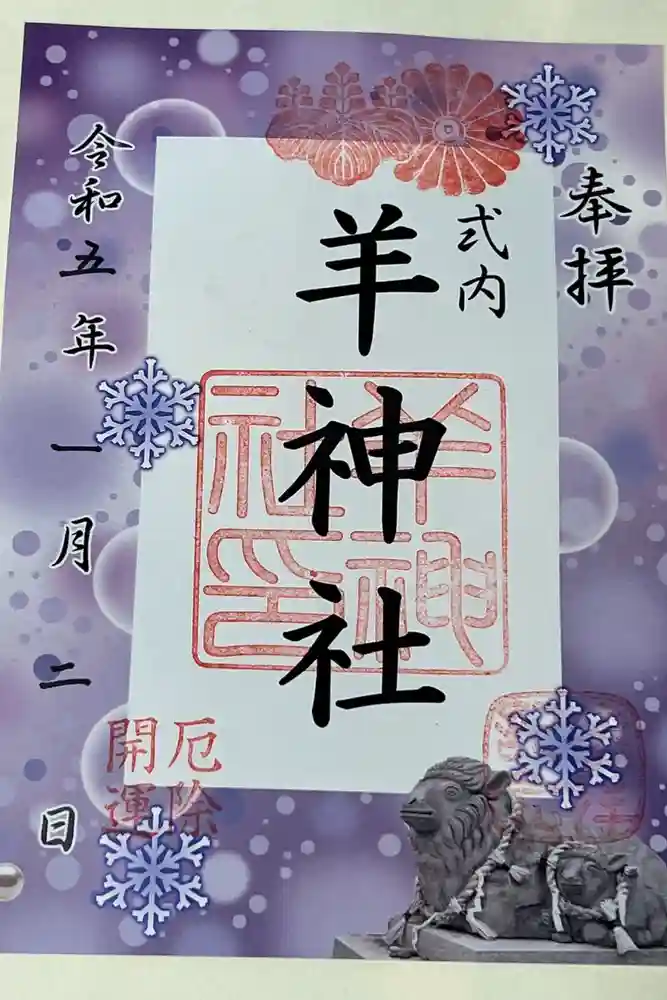 奉拝
式内
羊神社
羊神社印
厄除
開運
令和五年一月二日